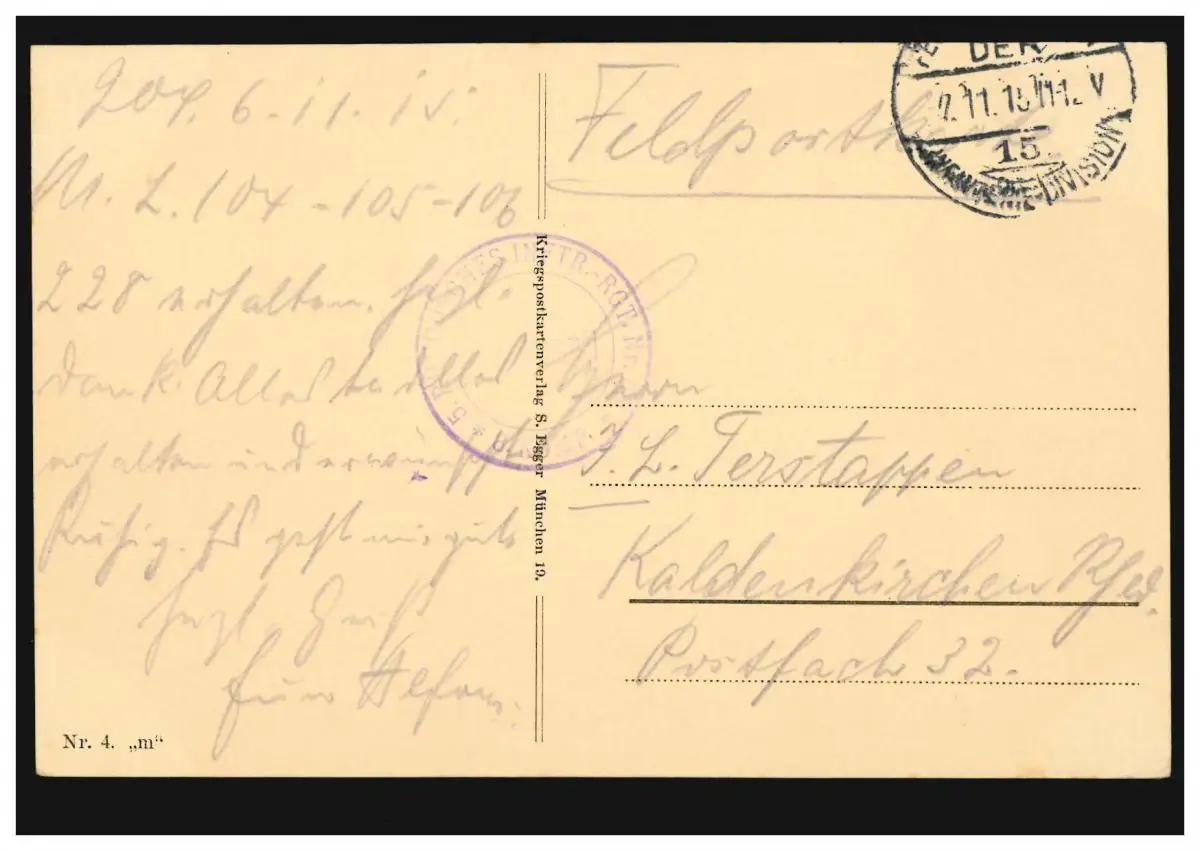 204. 6.11.15.
N. L. 104-105-106
228 erhalten. Herzl.
Dank. Alles
erhalten und erwünscht
Ruhig. Es geht mir gut.
Herzl. Gruß
Euer Alfons.
Nr. 4. „m“
Kriegspostkartenverlag S. Egger München 19.
Feldpostkarte
Herrn
J. L. Terstappen
Kaldenkirchen Rhld.
Postfach 32.
DER
7.11.15 11-12 V
15
DIVISION
RGT. Nr.